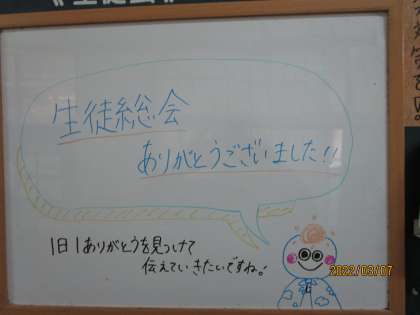 生徒総会
ありがとうございました!!
1日1ありがとうを見つけて
伝えていきたいですね!
2022/03/07